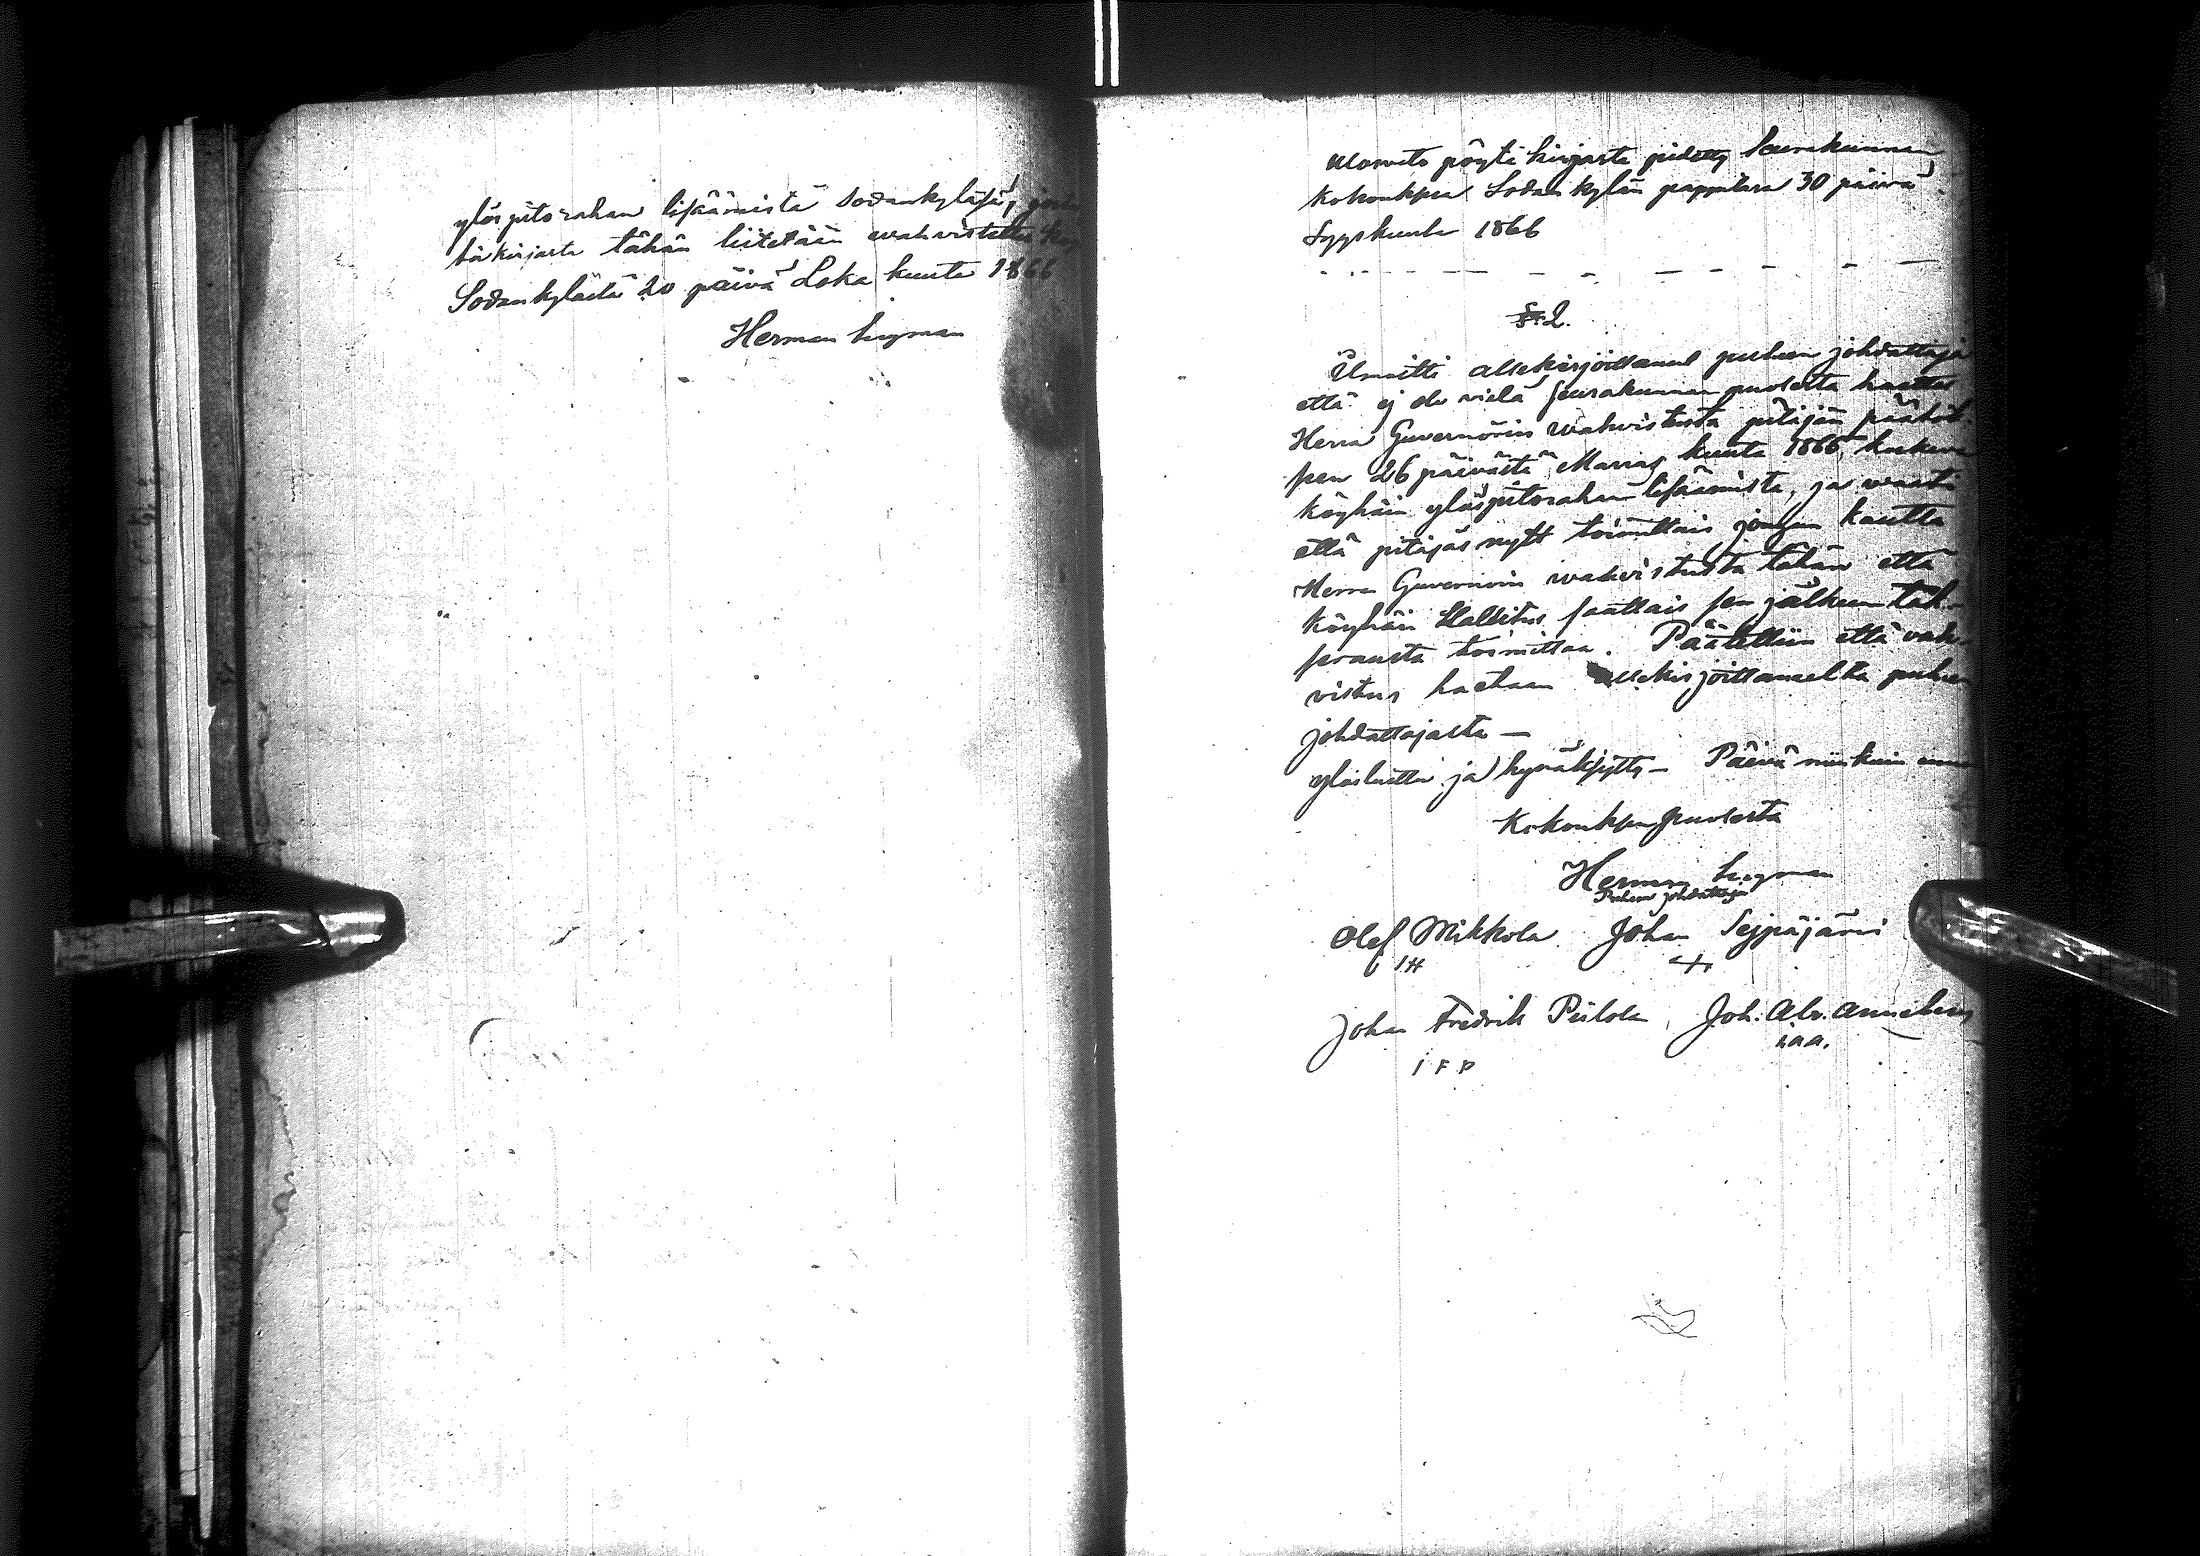 ylöspitorahan lisäämistä Sodankyläsä,
tähän liitetään wahvistettu
Sodankylästä 20 päivä Loka kuuta 1866
Herman
Ulosveto pöytäkirjasta pidetty Seurakunnan
kokouksesa Sodankylän pappilasa 30 päivä
Syyskuuta 1866
§ 2.
Ilmoitti allekirjoittanut puheen johdattaja
että ej ole vielä seurakunnan puolesta haettu
Herra Guvernörin wahvistusta pitäjän päätök-
sen 26 päivästä Marras kuuta 1865, koskeva
köyhäin ylöspitorahan lisäämistä, ja waati
että pitäjäs nytt toimittais jongun kautta
Herra Guvernörin wahvistusta tähän että
köyhäin Hallitus saattais sen jälkeen tak-
serausta toimittaa. Päätettiin että vah-
vistus haetaan allekirjoittaneelta puheen
johdattajalta —
ylösluettu ja hyväksytty — Päivä niinkuin
Kokouksen puolesta
Herman
Puheen johdattaja
Olof Mikkola Johan Seppäjärvi
Johan Fredrik Piilola, Joh. Abr.
I F P